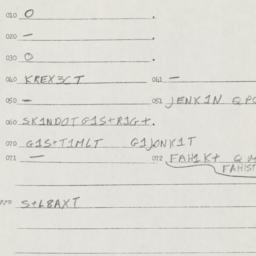 010 O .
020 — .
030 O .
040 KREX3CT 041 —
050 — 051 JENK1N
060 SK1NDOTG1S+R1G+.
070 G1S+T1MLT G1JONK1T
071 — 072 FAH1K+
S+L8AXT